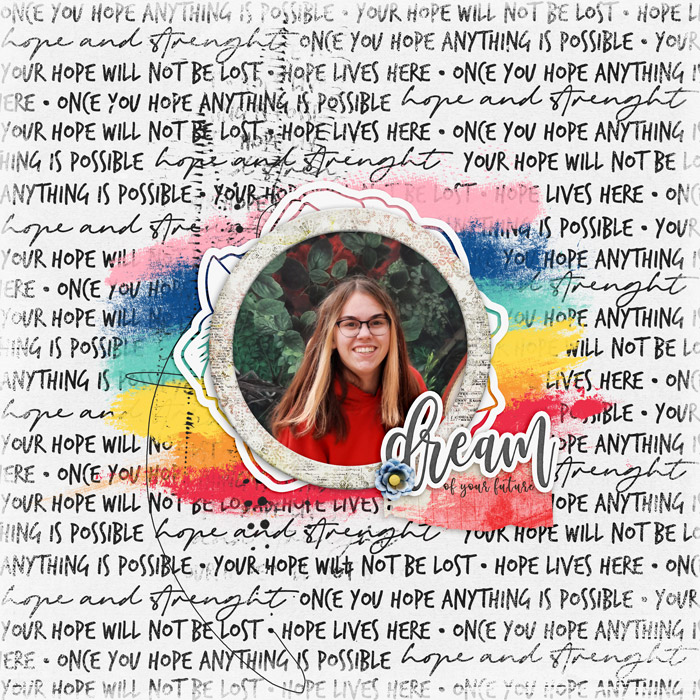 ONCE YOU HOPE ANYTHING IS POSSIBLE • YOUR HOPE WILL NOT BE LOST • HOPE
hope and strenght ONCE YOU HOPE ANYTHING IS POSSIBLE • YOUR
YOUR HOPE WILL NOT BE LOST • HOPE LIVES HERE • ONCE YOU HOPE ANYTHING
ERE • ONCE YOU HOPE ANYTHING IS POSSIBLE hope and strenght
YOUR HOPE WILL NOT BE LOST • HOPE LIVES HERE • ONCE YOU HOPE ANYTHING
HING IS POSSIBLE hope and strenght YOUR HOPE WILL NOT BE
ANYTHING IS POSSIBLE • YOUR HOP BE LOST • HOPE LIVES HERE • ON
hope and stre ONCE YOU HOPE ANYTHING IS POSSIBLE • YOUR
YOUR HOPE WILL YOU HOPE ANYTHING
ERE • ONCE YOU HOP strenght
YOUR HOPE WILL NO YOU HOPE ANYTHING
HING IS POSSIBL WILL NOT BE
ANYTHING IS PO LIVES HERE • ON
hope an SIBLE • YOUR
YOUR HOPE WILL NO OPE ANYTHING
dream
of your future
ERE • ONCE YOU HOPE strenght
YOUR HOPE WILL NOT BE LOST AND HOPE LIVES OPE ANYTHING
HING IS POSSIBLE hope and strenght YOUR HOPE WILL NOT BE
ANYTHING IS POSSIBLE • YOUR HOPE WILL NOT BE LOST • HOPE LIVES HERE • ON
hope and strenght ONCE YOU HOPE ANYTHING IS POSSIBLE • YOUR
YOUR HOPE WILL NOT BE LOST • HOPE LIVES HERE • ONCE YOU HOPE ANYTHING
ERE • ONCE YOU HOPE ANYTHING IS POSSIBLE hope and strenght
YOUR HOPE WILL NOT BE LOST • HOPE LIVES HERE • ONCE YOU HOPE ANYTHING